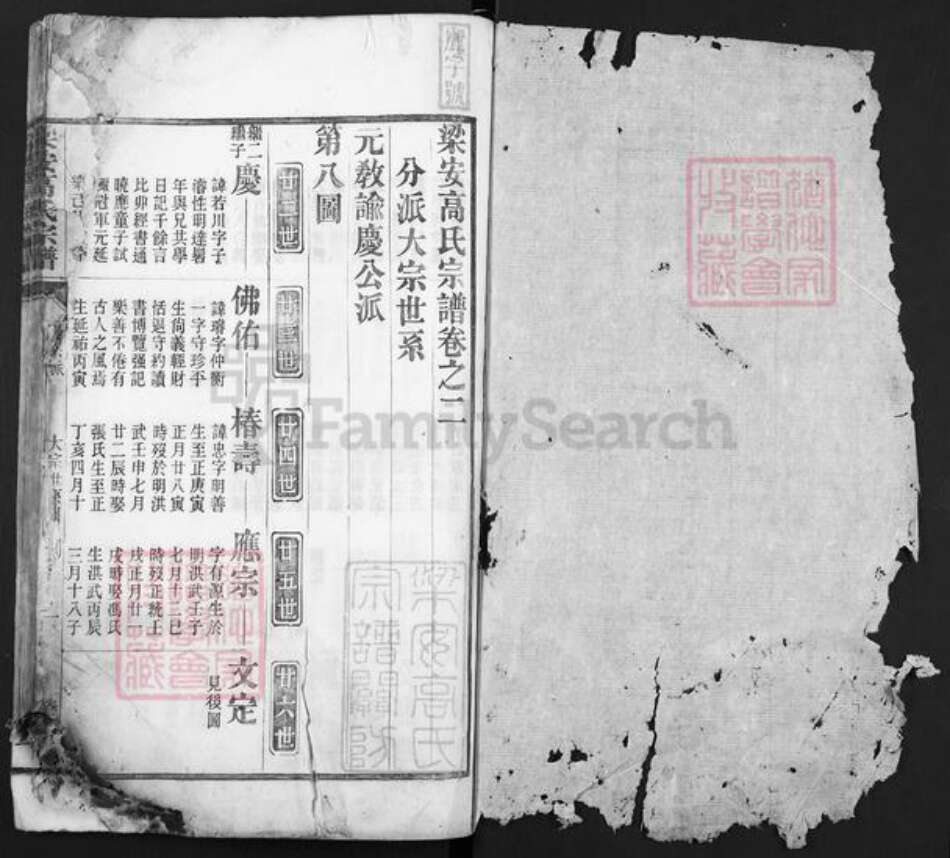 梁安高氏宗譜卷之二
分派大宗世系
元教諭慶公派
第八圖
廿二世
廿三世
廿四世
廿五世
廿六世
慶
諱若川字子
濬性明達暑
年與兄共學
日記千餘言
比丱經書通
曉應童子試
冠軍元延
佛佑
諱璿字仲衡
一字守珍平
生尙義輕財
恬退守約讀
書博覽强記
樂善不倦有
古人之風焉
生延祐丙寅
椿壽
諱忠字明善
生至正庚寅
正月廿八寅
時歿於明洪
武壬申七月
廿二辰時娶
張氏生至正
丁亥四月十
應宗
字有源生於
明洪武壬子
七月十二巳
時歿正統壬
戌正月廿一
戌時娶馮氏
生洪武丙辰
三月十八子
文定
見後圖
梁安高氏宗譜
梁安高氏
宗譜關防
FamilySearch